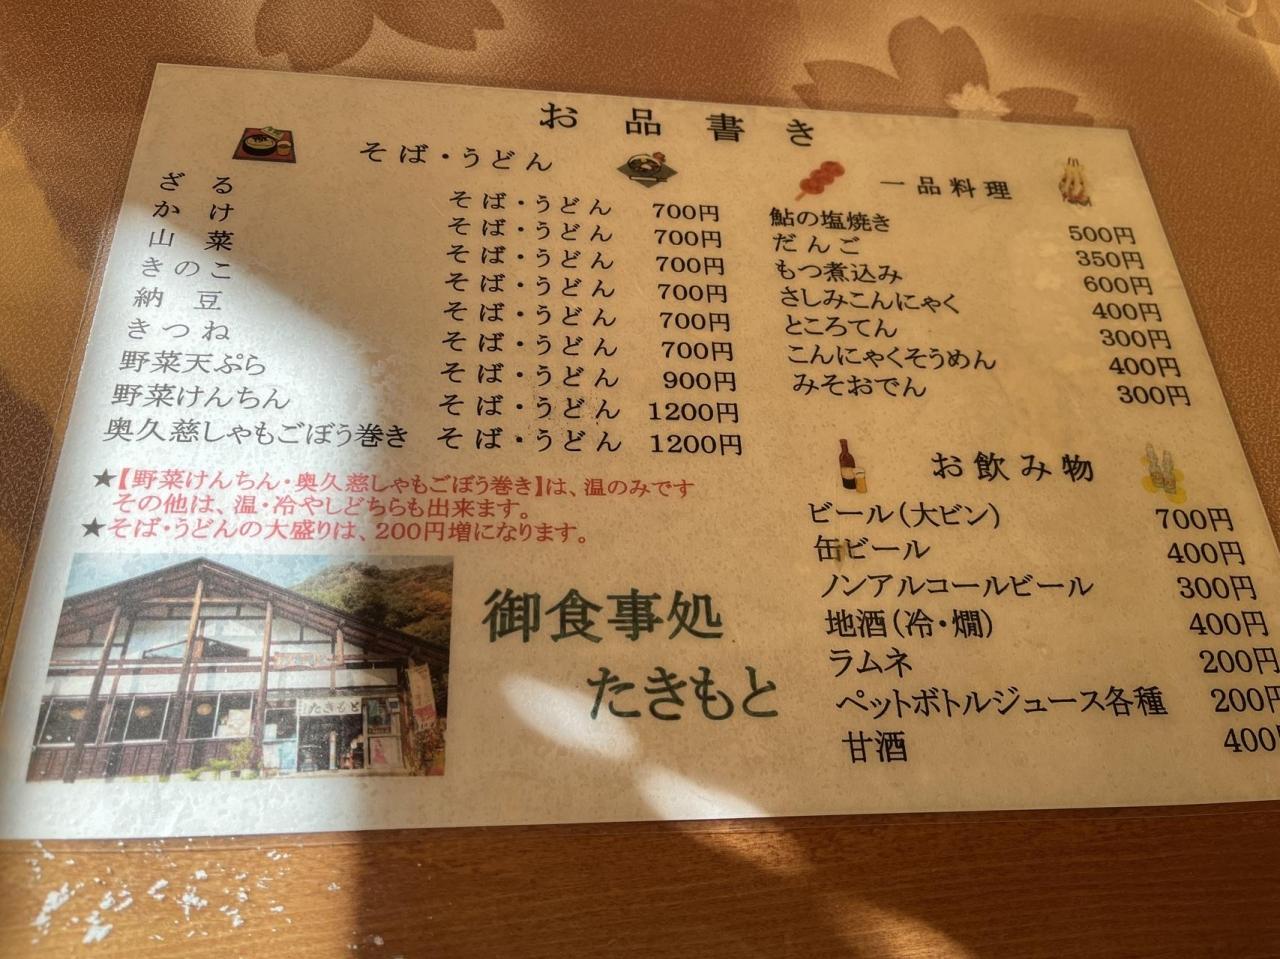 お品書き
そば・うどん
ざる そば・うどん 700円
かけ そば・うどん 700円
山菜 そば・うどん 700円
きのこ そば・うどん 700円
納豆 そば・うどん 700円
きつね そば・うどん 700円
野菜天ぷら そば・うどん 900円
野菜けんちん そば・うどん 1200円
奥久慈しゃもごぼう巻き そば・うどん 1200円
★【野菜けんちん・奥久慈しゃもごぼう巻き】は、温のみです
その他は、温・冷やしどちらも出来ます。
★そば・うどんの大盛りは、200円増になります。
一品料理
鮎の塩焼き 500円
だんご 350円
もつ煮込み 600円
さしみこんにゃく 400円
ところてん 300円
こんにゃくそうめん 400円
みそおでん 300円
お飲み物
ビール(大ビン) 700円
缶ビール 400円
ノンアルコールビール 300円
地酒(冷・燗) 400円
ラムネ 200円
ペットボトルジュース各種 200円
甘酒 400
御食事処
たきもと
たきもと